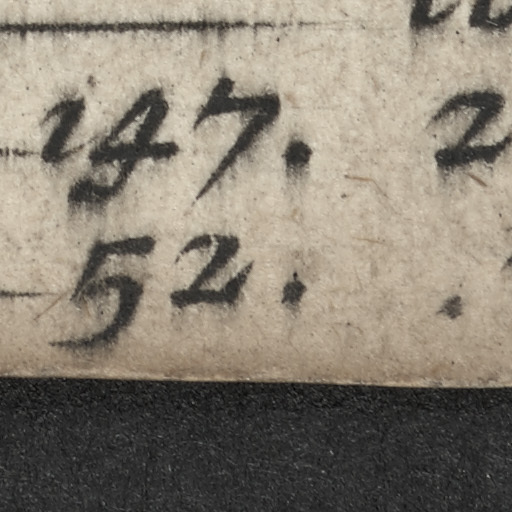 147. 2
52. .